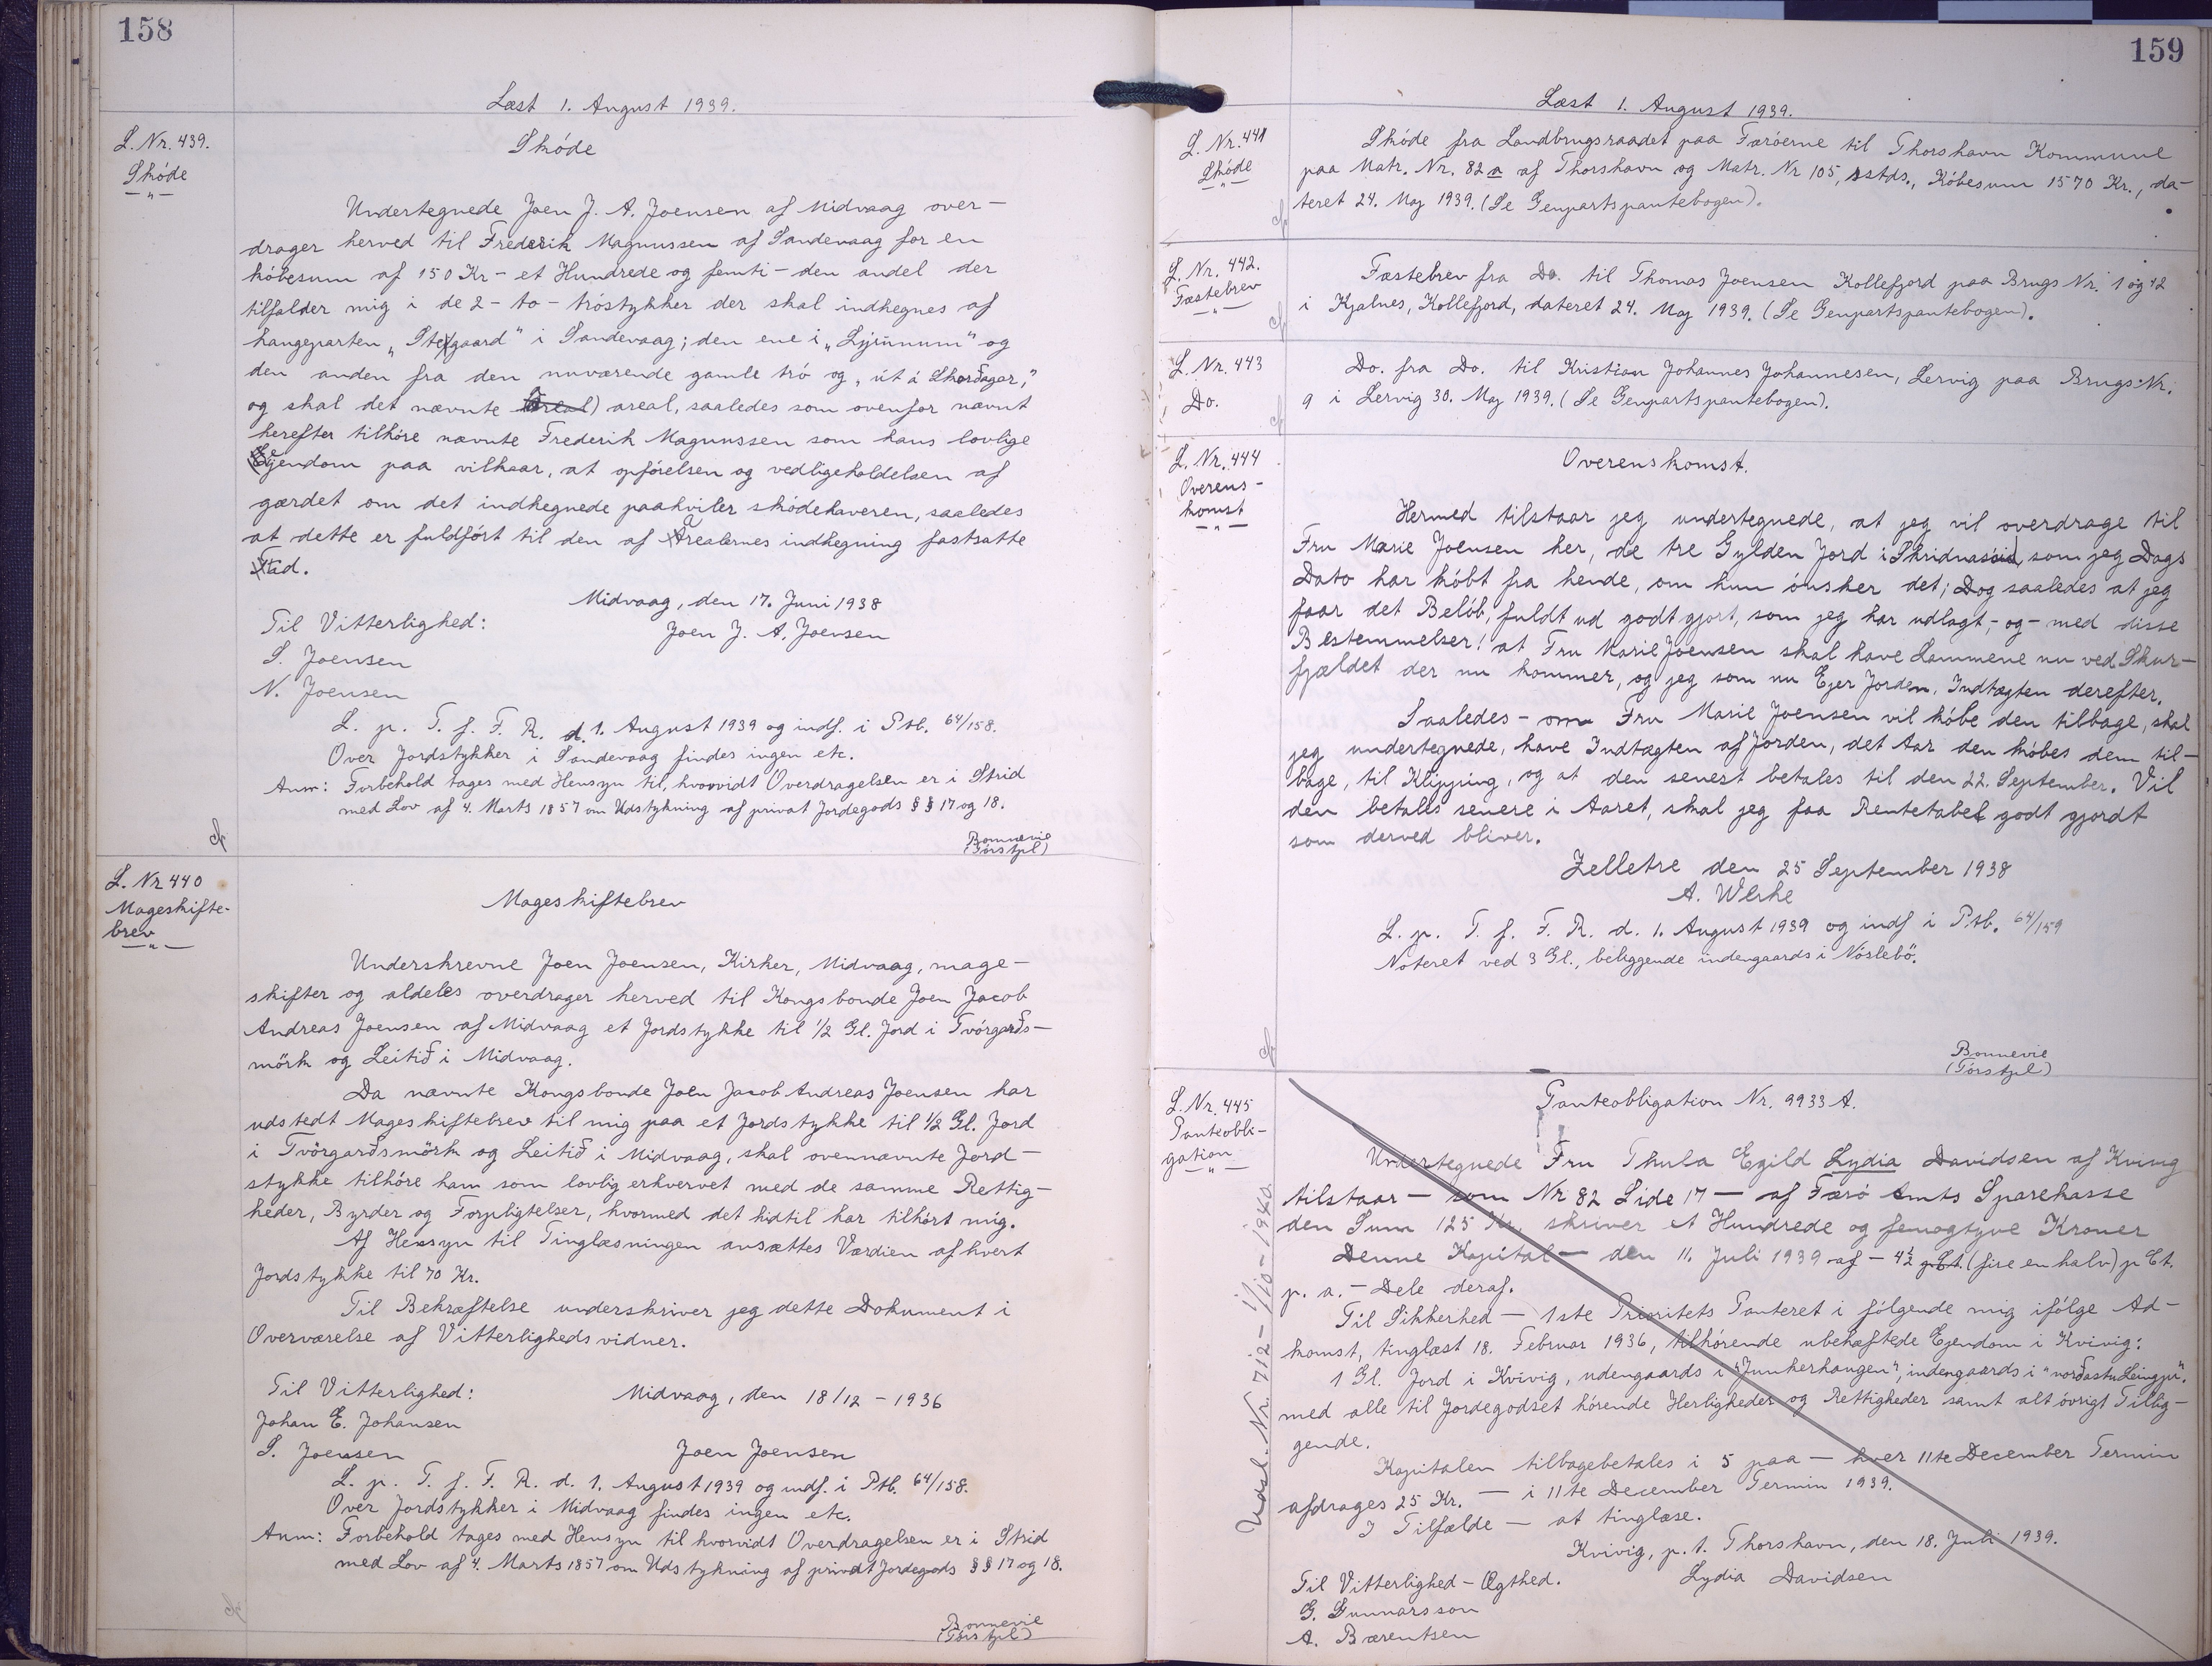 158
Læst 1. August 1939.
L. Nr. 439.
Skóde
— " —
Skóde
Undertegnede Joen J. A. Joensen af Midvaag over-
drager herved til Frederik Magnussen af Sandevaag for en
kóbesum af 150 Kr - et Hundrede og femti - den andel der
tilfalder mig i de 2 - to - tróstykker der skal indhegnes af
haugeparten „ gaard" i Sandevaag; den ene i „ " og
den anden fra den nuværende gamle tró og „út á Skorðagar,"
og skal det nævnte areal) areal, saaledes som ovenfor nævnt
herefter tilhóre nævnte Frederik Magnussen som hans lovlige
Ejendom paa vilkaar, at opfórelsen og vedligeholdelsen af
gærdet om det indhegnede paahviler skódehaveren, saaledes
at dette er fuldfórt til den af Arealernes indhegning fastsatte
Tid.
Midvaag, den 17. Juni 1938
Til Vitterlighed:
Joen J. A. Joensen
S. Joensen
N. Joensen
L. p. T. f. F. R. d. 1. August 1939 og indf. i Ptb. 64/158.
Over Jordstykker i Sandevaag findes ingen etc.
Anm: Forbehold tages med Hensyn til, hvorvidt Overdragelsen er i Strid
med Lov af 4. Marts 1857 om Udstykning af privat Jordegods § § 17 og 18.
Bonnevie
(Tórstpl)
L. Nr 440
Mageskifte-
brev
— " —
Mageskiftebrev
Underskrevne Joen Joensen, Kirker, Midvaag, mage-
skifter og aldeles overdrager herved til Kongsbonde Joen Jacob
Andreas Joensen af Midvaag et Jordstykke til 1/2 Gl. Jord i Tvórgarðs-
mörk og Leitið i Midvaag.
Da nævnte Kongsbonde Joen Jacob Andreas Joensen har
udstedt Mageskiftebrev til mig paa et Jordstykke til 1/2 Gl. Jord
i Tvörgarðsmörk og Leitið i Midvaag, skal ovennævnte Jord-
stykke tilhóre ham som lovlig erhvervet med de samme Rettig-
heder, Byrder og Forpligtelser, hvormed det hidtil har tilhórt mig.
Af Hensyn til Tinglæsningen ansættes Værdien af hvert
Jordstykke til 70 Kr.
Til Bekræftelse underskriver jeg dette Dokument i
Overværelse af Vitterlighedsvidner.
Til Vitterlighed:
Midvaag, den 18/12 - 1936
Johan E. Johansen
S. Joensen
Joen Joensen
L. p. T. f. F. R. d. 1. August 1939 og indf. i Ptb. 64/158.
Over Jordstykker i Midvaag findes ingen etc.
Anm: Forbehold tages med Hensyn til hvorvidt Overdragelsen er i Strid
med Lov af 4. Marts 1857 om Udstykning af privat Jordegods § § 17 og 18.
Bonnevie
(Tórstpl)
159
Læst 1. August 1939.
L. Nr. 441
Skóde
— " —
Skóde fra Landbrugsraadet paa Færóerne til Thorshavn Kommune
paa Matr. Nr. 82 a af Thorshavn og Matr. Nr 105, sstds., Kóbesum 1570 Kr., da-
teret 24. Maj 1939. (Se Genpartspantebogen).
L. Nr. 442.
Fæstebrev
— " —
Fæstebrev fra Do. til Thomas Joensen Kollefjord paa Brugs Nr. 1 og 42
i Kjalnes, Kollefjord, dateret 24. Maj 1939. (Se Genpartspantebogen).
L. Nr. 443
Do.
Do. fra Do. til Kristian Johannes Johannesen, Lervig paa Brugs Nr.
9 i Lervig 30. Maj 1939. (Se Genpartspantebogen).
L. Nr. 444
Overens-
komst
— " —
Overenskomst.
Hermed tilstaar jeg undertegnede, at jeg vil overdrage til
Fru Marie Joensen her, de tre Gylden Jord i som jeg Dags
Dato har kóbt fra hende, om hun ónsker det; Dog saaledes at jeg
faar det Belób, fuldt ud godt gjort, som jeg har udlagt, - og - med disse
Bestemmelser! at Fru Marie Joensen skal have Lammene nu ved Skur-
fjældet der nu kommer, og jeg som nu Ejer Jorden, Indtægten derefter.
Saaledes - om Fru Marie Joensen vil kóbe den tilbage, skal
jeg undertegnede, have Indtægten af Jorden, det Aar den kóbes dem til-
bage, til Klipping, og at den senest betales til den 22. September. Vil
den betales senere i Aaret, skal jeg faa Rentetabet godt gjordt
som derved bliver.
Zelletre den 25 September 1938
A. Weihe
L. p. T. f. F. R. d. 1. August 1939 og indf i Ptb. 64/159
Noteret ved 3 Gl., beliggende indengaards i Nöslebö.
Bonnevie
(Tórstpl)
L. Nr. 445
Panteobli-
gation
— " —
Panteobligation Nr. 9933 A.
Undertegnede Fru Thula Egild Lydia Davidsen af Kvivig
tilstaar — som Nr 82 Side 17 — af Færó Amts Sparekasse
den Sum 125 Kr. skriver et Hundrede og femogtyve Kroner
Denne Kapital — den 11. Juli 1939 af — 4½ p Ct. (fire en halv) p Ct.
p. a. — Dele deraf.
Til Sikkerhed — 1ste Prioritets Panteret i fólgende mig ifólge Ad-
komst, tinglæst 18. Februar 1936, tilhórende ubehæftede Ejendom i Kvivig:
1 Gl. Jord i Kvivig, udengaards i "Junkerhaugen", indengaards i "norðastu Leingjır".
med alle til Jordegodset hórende Herligheder og Rettigheder samt alt óvrigt Tillig-
gende.
Kapitalen tilbagebetales i 5 paa — hver 11te December Termin
afdrages 25 Kr. — i 11te December Termin 1939.
I Tilfælde — at tinglæse.
Kvivig, p. t. Thorshavn, den 18. Juli 1939.
Til Vitterlighed - Ægthed.
Lydia Davidsen
G. Gunnarsson
A. Bærentsen
Udsl. Nr. 712 - 1/10 - 1940.